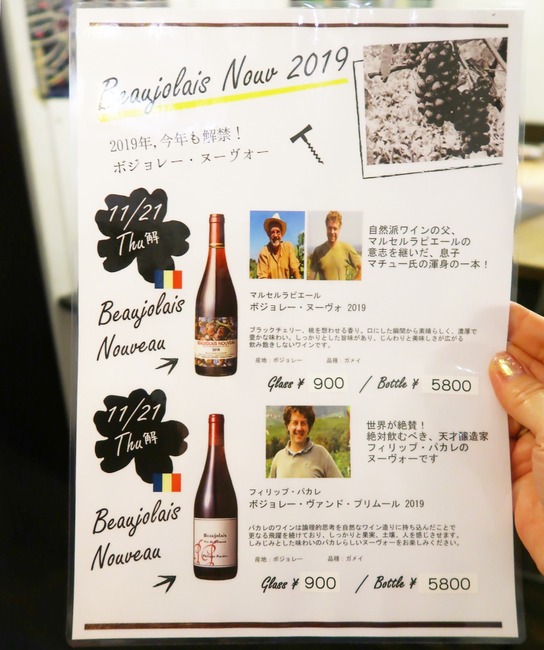 Beaujolais Nouv 2019
2019年,今年も解禁!
ボジョレー・ヌーヴォー
11/21
Thu解
自然派ワインの父、
マルセルラピエールの
意志を継いだ、息子
マチュー氏の渾身の一本!
Beaujolais
Nouveau
マルセルラピエール
ボジョレー・ヌーヴォ 2019
ブラックチェリー、桃を想わせる香り。口にした瞬間から素晴らしく、濃厚で
豊かな味わい。しっとりとした旨味があり、じんわりと美味しさが広がる
飲み飽きしないワインです。
産地:ボジョレー 品種:ガメイ
Glass ¥ 900 / Bottle ¥ 5800
11/21
Thu解
世界が絶賛!
絶対飲むべき、天才醸造家
フィリップ・パカレの
ヌーヴォーです
Beaujolais
Nouveau
Beaujolais
フィリップ・パカレ
ボジョレー・ヴァンド・プリムール 2019
パカレのワインは論理的思考を自然なワイン造りに持ち込んだことで
更なる飛躍を続けており、しっかりと果実、土壌、人を感じさせます。
しみじみとした味わいのパカレらしいヌーヴォーをお楽しみください。
産地:ボジョレー 品種:ガメイ
Glass ¥ 900 / Bottle ¥ 5800